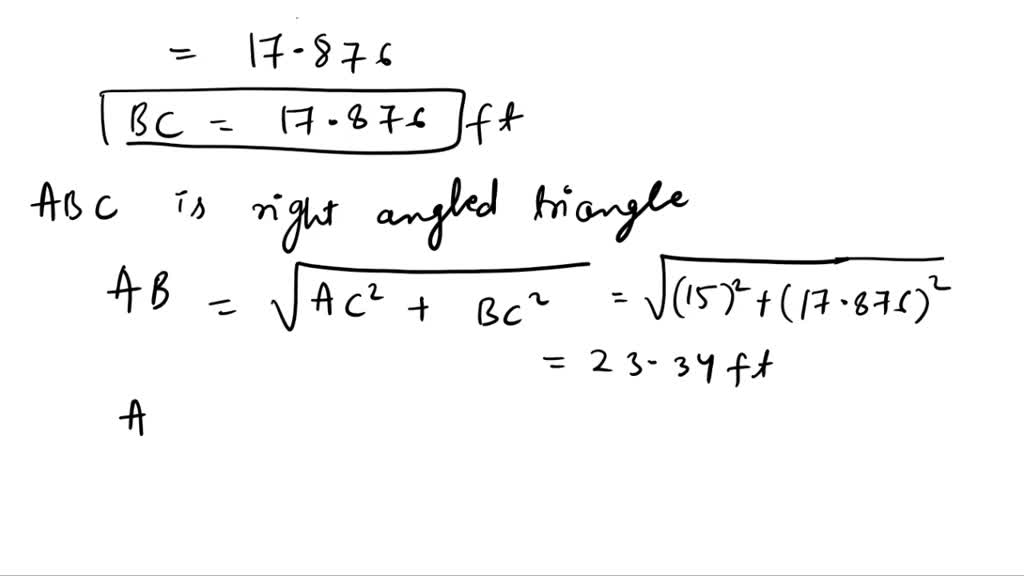 = 17.876
BC = 17.876 ft
ABC is right angled triangle
AB = √AC² + BC² = √(15)² + (17.876)²
= 23.34 ft
A